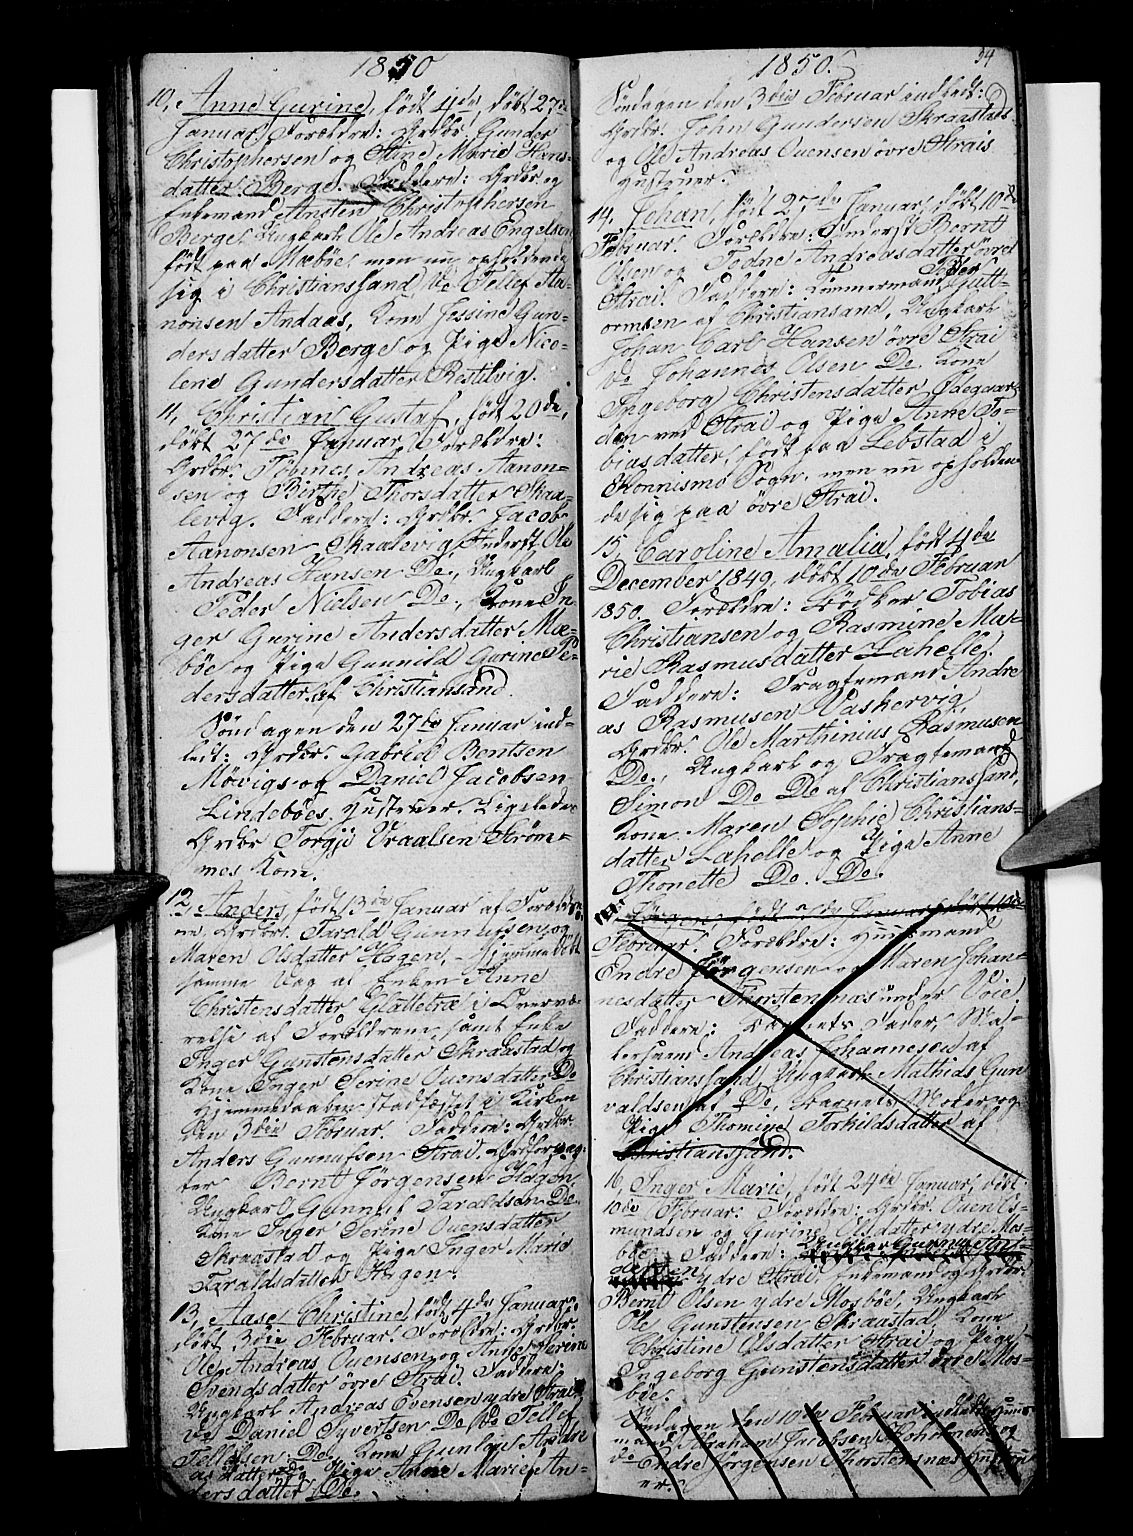 1850
10, Anne Gurine, født 4de, døbt 27de
Januar. Forældre: Grdbr. Gunder
Christophersen og Stine Marie Hans-
datter Berge. Faddere: Grdbr og
Enkemand Ansten Christophersen
Berge. Ungkarl Ole Andreas Engelsen
født paa Mæbøe men nu opholdende
sig i Christianssand, Do Tellef Aa-
nonsen Andaas, Kone Jessine Gun-
dersdatter Berge og Pige Nico-
lene Gundersdatter Bestilvig.
11, Christian Gustaf, født 20de,
døbt 27de Januar. Forældre:
Grdbr. Tobines Andreas Aanon-
sen og Birthe Thorsdatter Skaa-
levig. Faddere: Grdbr. Jacob
Aanonsen Skaalevig, Inderst Ole
Andreas Hansen Do., Ungkarl
Peder Nielsen Do., Kone In-
ger Gurine Andersdatter Mæ-
bøe og Pige Gunnild Gurine Pe-
dersdatter af Christianssand.
Søndagen den 27de Januar ind-
ledt: Grdbr. Gabriel Bentsen
Møvigs og Daniel Jacobsen
Lindebøes Hustruer. Ligeledes
Grdbr Torgje Vraalsen Strøm-
mes Kone.
12, Anders, født 13de Januar af Forældre-
ne, Grdbr. Tarald Gunnufsen og
Maren Olsdatter Hagen, - Hjemmedøbt
samme Dag af Enken Anne
Christensdatter Glattetræ i Overvæ-
relse af Forældrene, samt Enke
Inger Gunstensdatter Skraastad og
Kone Inger Serine Ouensdatter Do
Hjemmedaaben stadfæstet i Kirken
den 3die Februar. Faddere: Grdbr
Anders Gunnufsen Strai. Grdforpag-
ter Bernt Jørgensen Hagen,
Ungkarl Gunnuf Taraldsen Do.
Kone Inger Serine Ouensdatter
Skraastad og Pige Inger Marie
Taraldsdatter Hagen.
13, Aase Christine, født 4de Januar,
døbt 3die Februar. Forældre: Grdbr.
Ole Andreas Ouensen og Anne Serine
Svendsdatter øvre Strai. Faddere:
Ungkarl Andreas Evensen ydre Strai
Do Daniel Syversen Do, Do Tellef
Tellefsen Do. Kone Gunlau Andre
asdatter Do og Pige Anne Marie An-
dersdatter Do.
1850.
34
Søndagen den 3die Februar indledt:
Grdbr. John Gundersen Skraastads
og Ole Andreas Ouensen øvre Strais
Hustruer.
14, Johan, født 2de Januar, døbt 10de
Februar. Forældre: Inderst Bernt
Olsen og Todne Andreasdatter øvre
Strai. Faddere: Tømmermand Peder Gutt-
ormsen af Christianssand, Ungkarl
Johan Carl Hansen øvre Strai
Do Johannes Olsen Do. Kone
Ingeborg Christensdatter Ødegaar-
den ved Strai og Pige Anne To-
biasdatter, født paa Lebstad i
Konnismo Sogn, men nu opholden-
de sig paa øvre Strai.
15, Caroline Amalia, født 4de
December 1849, døbt 10de Februar
1850. Forældre: Bødker Tobias
Christiansen og Rasmine Ma-
rie Rasmusdatter Lahelle.
Faddere: Fragtemand Andre
as Rasmusen Vaskervig,
Grdbr. Ole Marthinius Rasmusen
Do., Ungkarl og Fragtemand
Simon Do Do af Christianssand,
Kone Maren Sophie Christians-
datter Lahelle og Pige Anne
Thonette Do. Do.
Jørgen, født de Januar, døbt 10de
Februar. Forældre: Huusmand
Endre Jørgensen og Maren Johan-
nesdatter Thorstensnæs under Voie.
Faddere: Barnets Fader, Ma-
tershand Andreas Johannesen af
Christianssand, Ungkarl Mathias Gun
valdsen af Do, Barnets Moder og
Pige Thomine Torkildsdatter af
Christianssand.
16, Inger Marie, født 24de Januar, døbt
10de Februar. Forældre: Grdbr. Ouen Es-
mundsen og Gurine Olsdatter ydre Mos-
bøe. Faddere: Ungkarl Gunnuf And-
ersen ydre Strai. Enkemand og Grdbr.
Bernt Olsen ydre Mosbøe, Ungkarl
Ole Gunstensen Skraastad, Kone
Christine Olsdatter Strai og Pige
Ingeborg Gunstensdatter øvre Mos-
bøe.
Søndagen den 10de Februar indledt: Huus-
mand Abraham Jacobsen Koholmens og
do Endre Jørgensen Thorstensnæs Hustru
er.